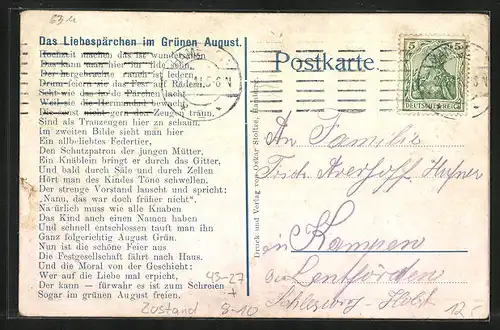 63 M
Das Liebespärchen im Grünen August.
Hochzeit machen das ist wunderschön
Das kann man hier im Bilde sehn.
Der hergebrachte rauch ist ledern,
Drum feiern sie das Fest auf Rädern.
Seht wie das Pärchen lacht
Weil sie die Hermandad bewacht,
Die sonst nicht gern den Zeugen traun,
Sind als Tranzeugen hier zu schaun.
Im zweiten Bilde sieht man hier
Ein allbeliebtes Federtier,
Den Schutzpatron der jungen Mütter,
Ein Knäblein bringt er durch das Gitter,
Und bald durch Säle und durch Zellen
Hört man des Kindes Töne schwellen.
Der strenge Vorstand lauscht und spricht:
„Nanu, das war doch früher nicht".
Natürlich muss wie alle Knaben
Das Kind auch einen Namen haben
Und schnell entschlossen tauft man ihn
Ganz folgerichtig August Grün.
Nun ist die schöne Feier aus
Die Festgesellschaft fährt nach Haus.
Und die Moral von der Geschicht:
Wer auf die Liebe mal erpicht,
Der kann — fürwahr es ist zum Schreien
Sogar im grünen August freien.
43-27
+
Zustand 3-10
Druck und Verlag von Oskar Stoltze,
Postkarte.
5 5
DEUTSCHES REICH
5-6 N
An Familie
Friedr. Averhoff Hufner
in Kampen
bei Lentförden
Schleswig-Holst
12,-